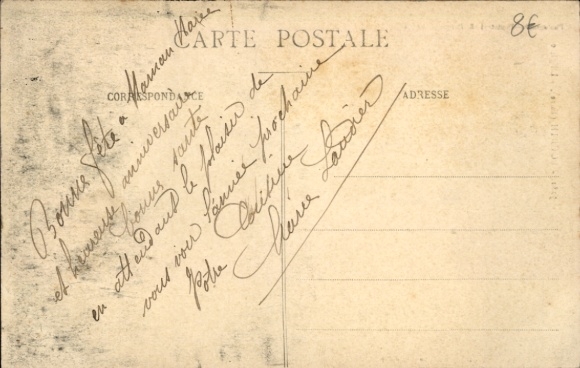 8€
CARTE POSTALE
CORRESPONDANCE
ADRESSE
Bonne fête a Maman Marie
et heureux anniversaire
bonne santé
en attendant le plaisir de
vous voir l'année prochaine
Votre
Marie